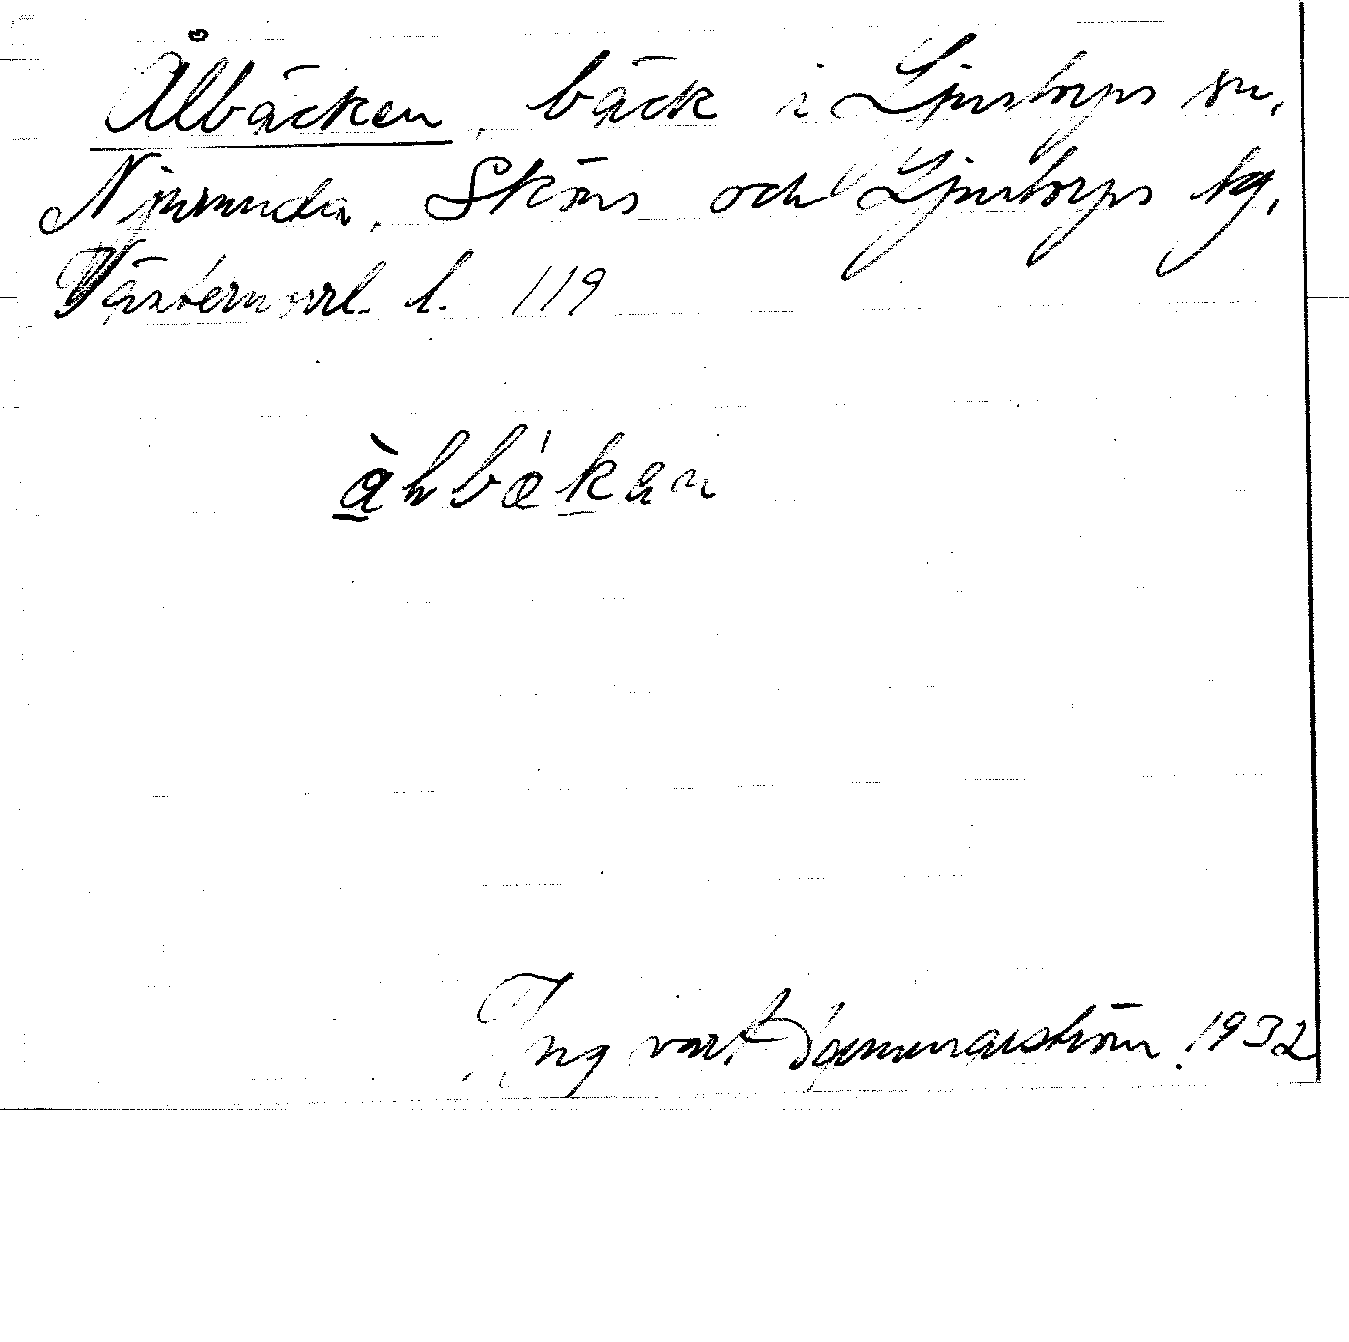 Ålbäcken, bäck i Ljustorps sn,
Njurunda, Sköns och Ljustorps tg,
Västernorrl. l. 119
Ingvart 1932